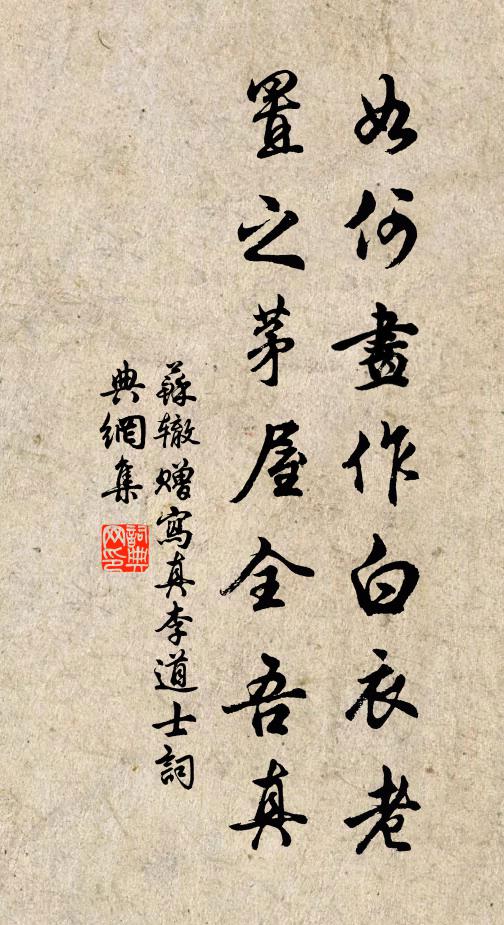 如何畫作白衣老
置之茅屋全吾真
蘇轍贈寫真李道士詞
典網集
詞典
网印